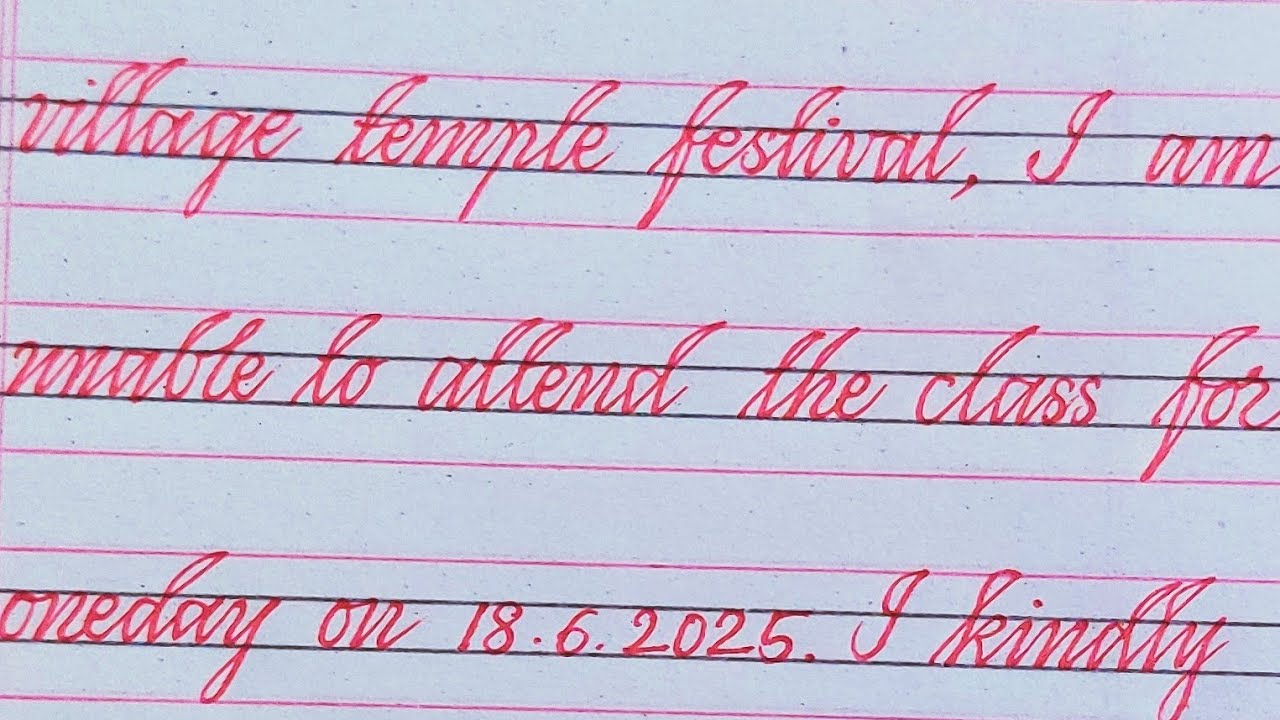 village temple festival, I am
unable to attend the class for
oneday on 18.6.2025. I kindly